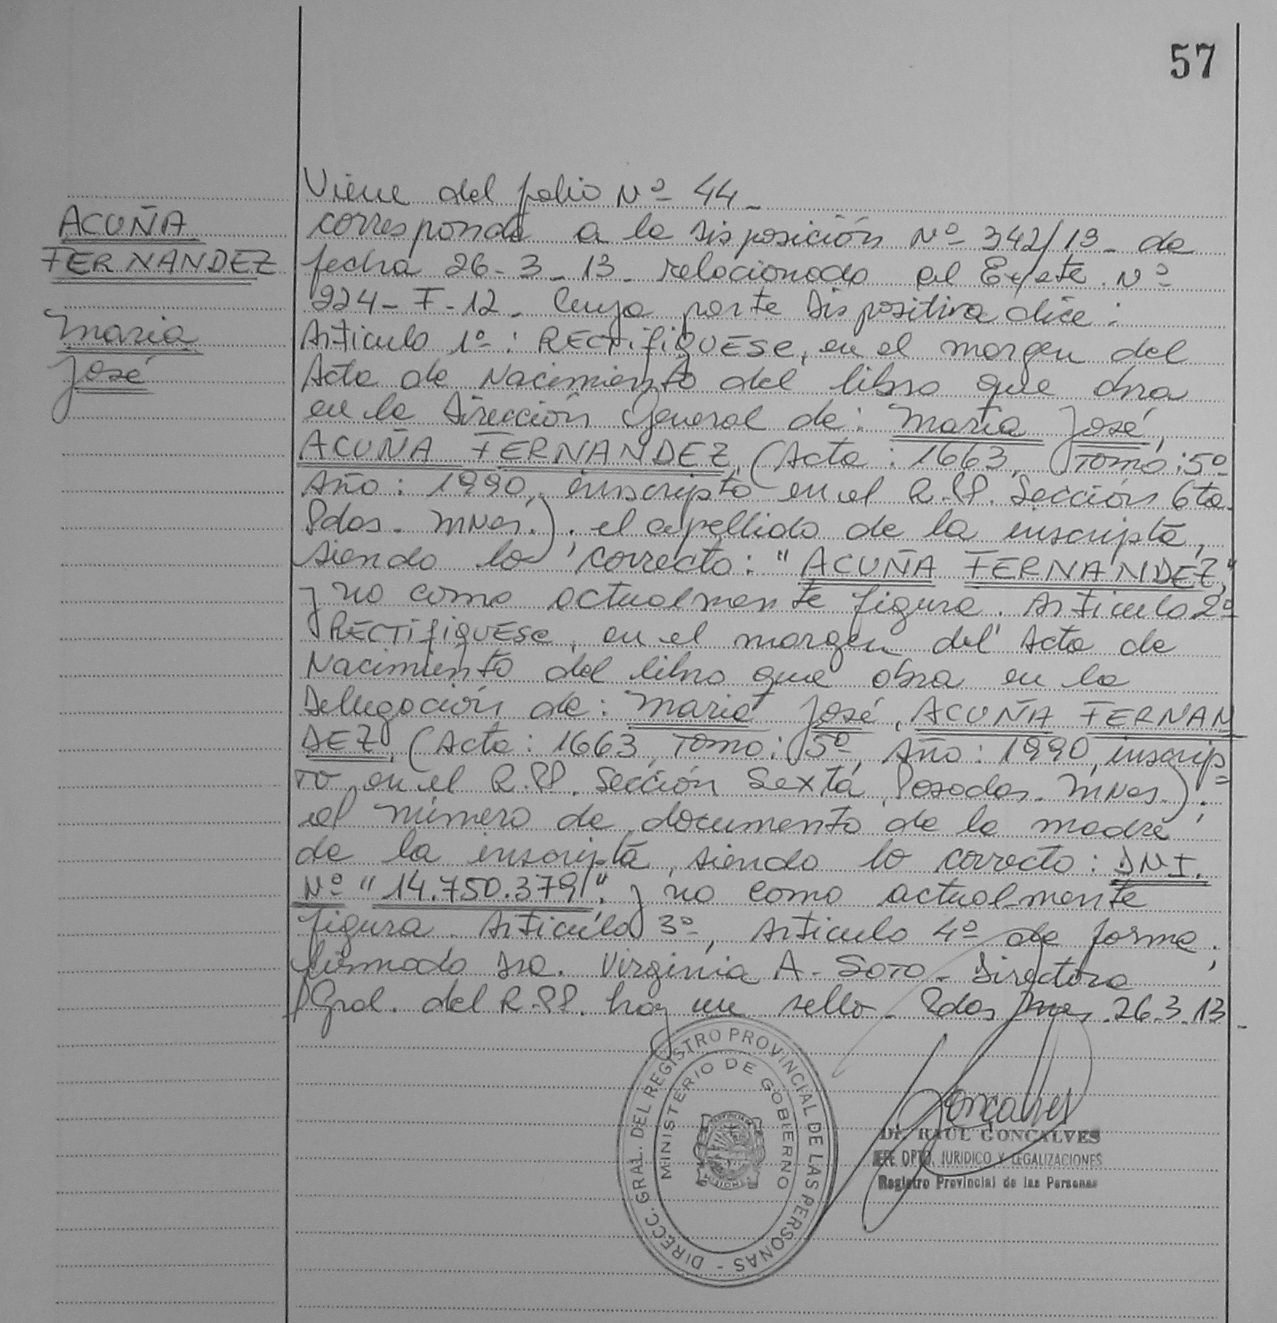 57
ACUÑA
FERNANDEZ
María
José
Viene del folio Nº 44-
corresponde a la Disposición Nº 342/13- de
fecha 26-3-13- relacionado al Expte. Nº
224-F-12- Cuya parte Dispositiva dice:
Artículo 1º: RECTIFIQUESE, en el margen del
Acta de Nacimiento del libro que obra
en la Dirección General de: María José,
ACUÑA FERNANDEZ, (Acta: 1663, Tomo: 5º
Año: 1990, inscripto en el R.PP. Sección 6ta
Pdas- MNes.). el apellido de la inscripta,
siendo lo correcto: "ACUÑA FERNANDEZ,"
y no como actualmente figura. Artículo 2º
RECTIFIQUESE, en el margen del Acta de
Nacimiento del libro que obra en la
Delegación de: María José, ACUÑA FERNAN
DEZ, (Acta: 1663, Tomo: 5º, Año: 1990, inscrip=
to, en el R.PP. Sección Sexta, Posadas- MNes.).
el número de documento de la madre
de la inscripta, siendo lo correcto: DNI.
Nº "14.750.379". y no como actualmente
figura. Artículo 3º, Artículo 4º de forma.
firmado Dra. Virginia A- SOTO- Directora
Gral. del R.PP. hay un sello- Pdas Mnes. 26.3.13-
DIRECC. GRAL. DEL REGISTRO PROVINCIAL DE LAS PERSONAS -
MINISTERIO DE GOBIERNO
Goncalves
Dr. RAUL GONCALVES
JEFE DPTO. JURIDICO Y LEGALIZACIONES
Registro Provincial de las Personas